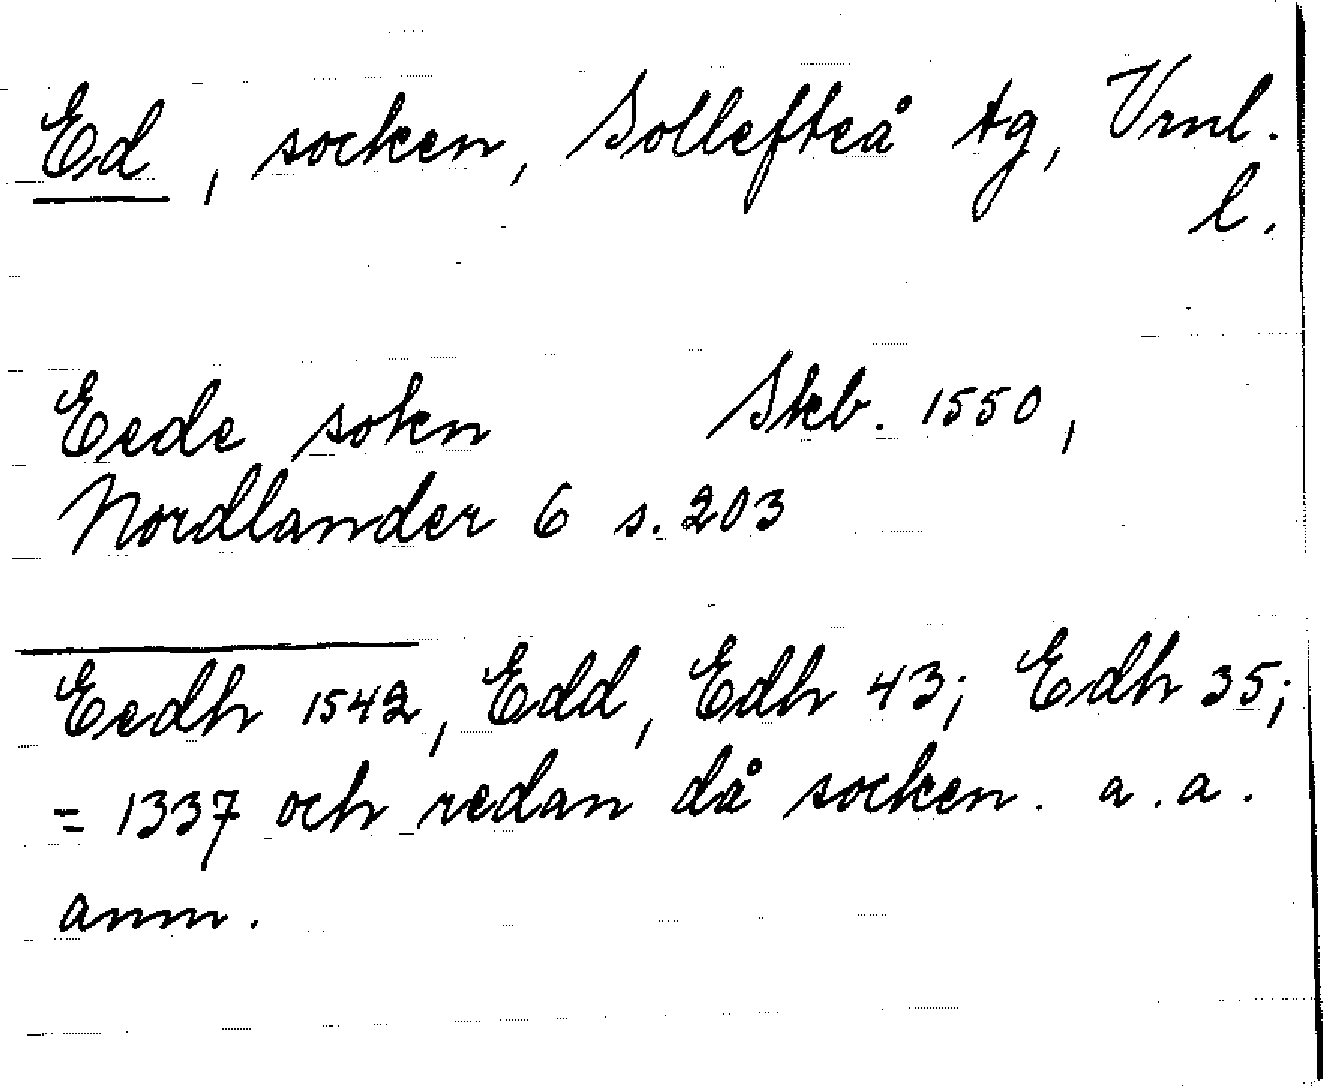 Ed, socken, Sollefteå tg, Vrnl.
l.
Eede sokn Skb. 1550,
Nordlander 6 s. 203
Eedh 1542, Edd, Edh 43; Edh 35;
= 1337 och redan då socken. a.a.
anm.